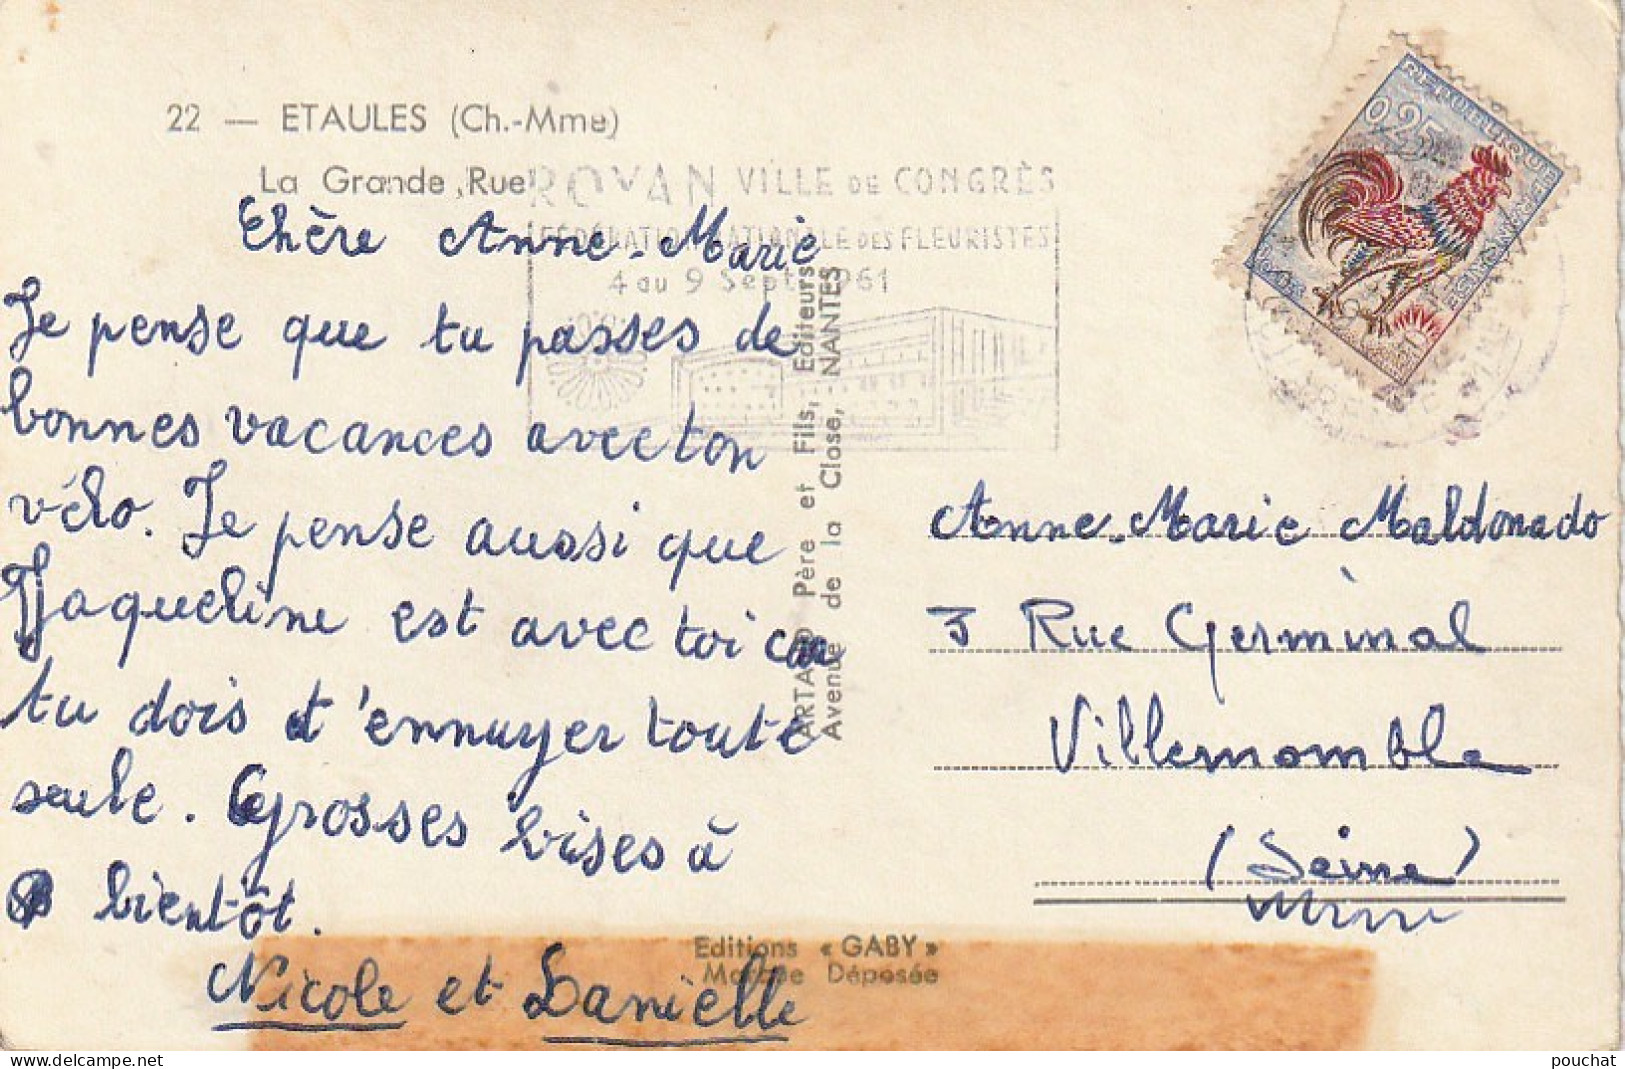 22 — ETAULES (Ch.-Mme)
La Grande Rue
ROYAN VILLE DE CONGRÈS
FÉDÉRATION NATIONALE DES FLEURISTES
4 au 9 Sept 1961
RÉPUBLIQUE FRANÇAISE
0,25
Chère Anne-Marie
Je pense que tu passes de
bonnes vacances avec ton
vélo. Je pense aussi que
Jaqueline est avec toi car
tu dois t'ennuyer toute
seule. Grosses bises à
bientôt.
Nicole et Danielle
ARTAUD Père et Fils, Editeurs
Avenue de la Close, NANTES
Anne-Marie Maldonado
3 Rue Germinal
Villemomble
(Seine)
Editions « GABY »
Marque Déposée
pouchat